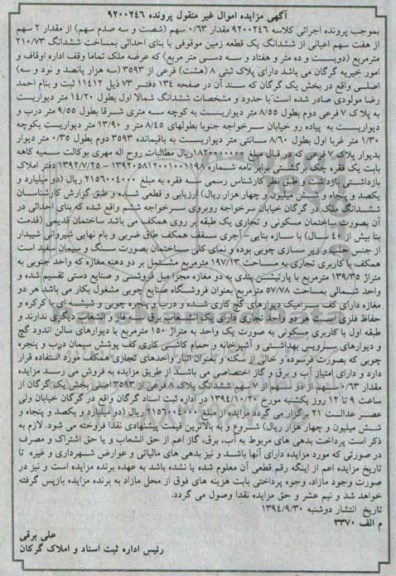 آگهی مزایده اموال غیر منقول پرونده ۹۲۰۰۲۴۶
بموجب پرونده اجرائی کلاسه ۹۲۰۰۲۴۶ مقدار ۰/۶۳ سهم (شصت و سه صدم سهم) از مقدار ۲ سهم
از هفت سهم اعیانی از ششدانگ یک قطعه زمین موقوفی با بنای احداثی بمساحت ششدانگ ۲۱۰/۷۳
مترمربع (دویست و ده متر و هفتاد و سه دسی متر مربع) که عرصه ملک تماما وقف اداره اوقاف و
امور خیریه گرگان می باشد دارای پلاک ثبتی ۸ (هشت) فرعی از ۳۵۹۳ (سه هزار پانصد و نود و سه)
اصلی واقع در بخش یک گرگان که سند آن در صفحه ۱۳۴ دفتر ۷۳ ذیل ۱۱۴۱۲ ثبت و بنام احمد
رضا مولودی صادر شده است با حدود و مشخصات ششدانگ شمالا اول بطول ۱۴/۲۰ متر دیواریست
به پلاک ۷ فرعی دوم بطول ۸/۵۵ متر دیواریست به کوچه سه متری شرقا بطول ۹/۵۵ متر درب و
دیواریست به پیاده رو خیابان سرخواجه جنوبا بطولهای ۸/۴۵ متر و ۱۳/۹۰ متر دیواریست بکوچه
۱/۳۰ متر غربا اول بطول ۸/۶۰ سانتی متر دیواریست به باقیمانده ۳۵۹۳ دوم بطول ۰/۳۵ متر دیوار
بدیوار پلاک ۷ فرعی که در قبال مبلغ ریال مطالبات روح اله مهری با وکالت سمیه کاهه
بابت یک فقره چک برگشتی برابر نامه شماره ۱۳۹۲/۷/۲۵ دفتر املاک
بازداشتی بازداشت و طبق نظر کارشناس رسمی سه فقره به مبلغ ۲۱۵۶۰۰۴۰۰۰ ریال (دو میلیارد و
یکصد و پنجاه و شش میلیون و چهار هزار ریال) ارزیابی و قطعی شده و طبق گزارش کارشناسان
ششدانگ ملک در گرگان خیابان سرخواجه روبروی سرخواجه ششم واقع شده که بنای احداثی در
آن بصورت ساختمان مسکونی و تجاری یک طبقه بر روی همکف می باشد ساختمان قدیمی (قدمت
بنا بیش از ۴۰ سال) با سازه بنایی آجری سقف همکف طاق ضربی و بام نهایی شیروانی شیبدار
از جنس حلب و زیر سازی چوبی بوده و نمای کلی ساختمان بصورت سنگ و سیمان سفید است
همکف با کاربری تجاری به مساحت ۱۹۷/۱۳ مترمربع مشتمل بر دو دهنه مغازه که واحد جنوبی به
متراژ ۱۳۹/۳۵ مترمربع با پارتیشن بندی به دو مغازه مجزا مبل فروشی و صنایع دستی تقسیم شده و
واحد شمالی بمساحت ۵۷/۷۸ مترمربع بعنوان فروشگاه صنایع چوبی مشغول بکار می باشد هر دو
مغازه دارای کف سرامیک دیوارهای گچ کاری شده و درب و پنجره چوبی و شیشه ای با کرکره و
حفاظ فلزی می باشد هر دو واحد تجاری دارای یک انشعاب برق است و فاقد انشعاب دیگری ندارند و
طبقه اول با کاربری مسکونی به صورت یک واحد به متراژ ۱۵۰ مترمربع با دیوارهای سالن اندود گچ
و دیوارهای سرویس بهداشتی و آشپزخانه و حمام کاشی کاری کف پوشش سیمان درب و پنجره
چوبی که بصورت فرسوده و خالی از سکنه و بعنوان انبار واحدهای تجاری همکف مورد استفاده قرار
دارد و دارای امتیاز آب و برق و گاز اختصاصی می باشد از طریق مزایده به فروش می رسد مزایده
مقدار ۰/۶۳ سهم از ۲ سهم از ۷ سهم ششدانگ پلاک ۸ فرعی از ۳۵۹۳ اصلی بخش یک گرگان از
ساعت ۹ تا ۱۲ روز یکشنبه مورخ ۱۳۹۴/۱۰/۲۰ در اداره ثبت اسناد گرگان واقع در گرگان خیابان ولی
عصر عدالت ۲۱ برگزار می گردد مزایده از مبلغ ۲۱۵۶۰۰۴۰۰۰ ریال (دو میلیارد و یکصد و پنجاه و
شش میلیون و چهار هزار ریال) شروع و به بالاترین قیمت پیشنهادی نقدا فروخته می شود. لازم به
ذکر است پرداخت بدهی های مربوط به آب، برق، گاز اعم از حق انشعاب و یا حق اشتراک و مصرف
در صورتی که مورد مزایده دارای آنها باشد و نیز بدهی های مالیاتی و عوارض شهرداری و غیره تا
تاریخ مزایده اعم از اینکه رقم قطعی آن معلوم شده یا نشده باشد به عهده برنده مزایده است و نیز در
صورت وجود مازاد، وجوه پرداختی بابت هزینه های فوق از محل مازاد به برنده مزایده بازپس گرفته
خواهد شد و نیم عشر و حق مزایده نقدا وصول می گردد.
تاریخ انتشار دوشنبه ۱۳۹۴/۹/۳۰
م الف ۳۳۷۰
علی برقی
رئیس اداره ثبت اسناد و املاک گرگان